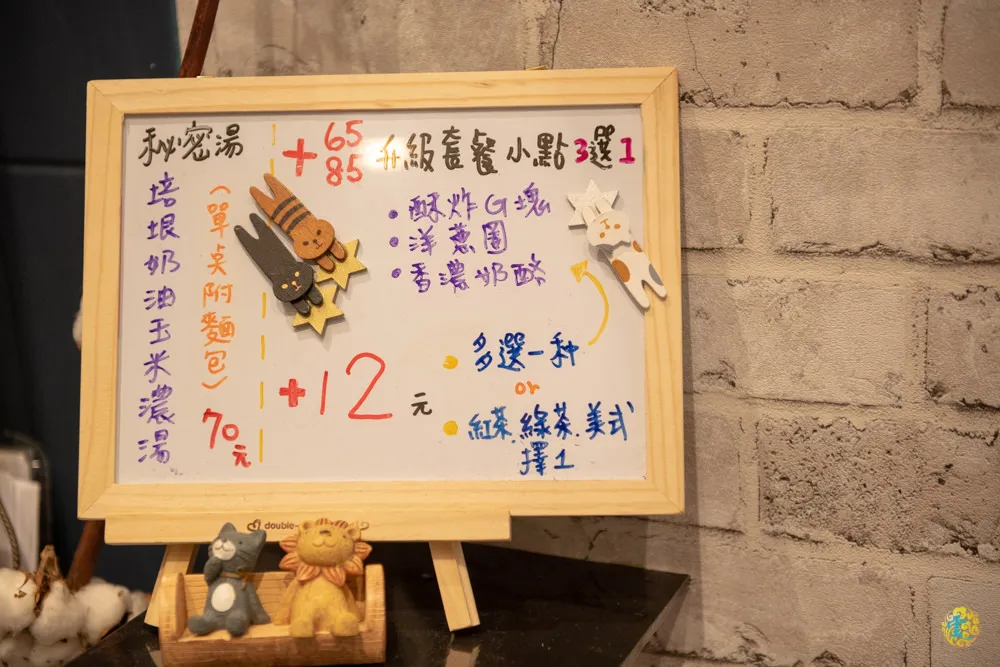 秘密湯
培根奶油玉米濃湯
(單桌附麵包)
70元
+65
85
升級套餐小點3選1
• 酥炸G塊
• 洋蔥圈
• 香濃奶酪
+12元
多選一种
or
紅茶.綠茶.美式
擇1
double-